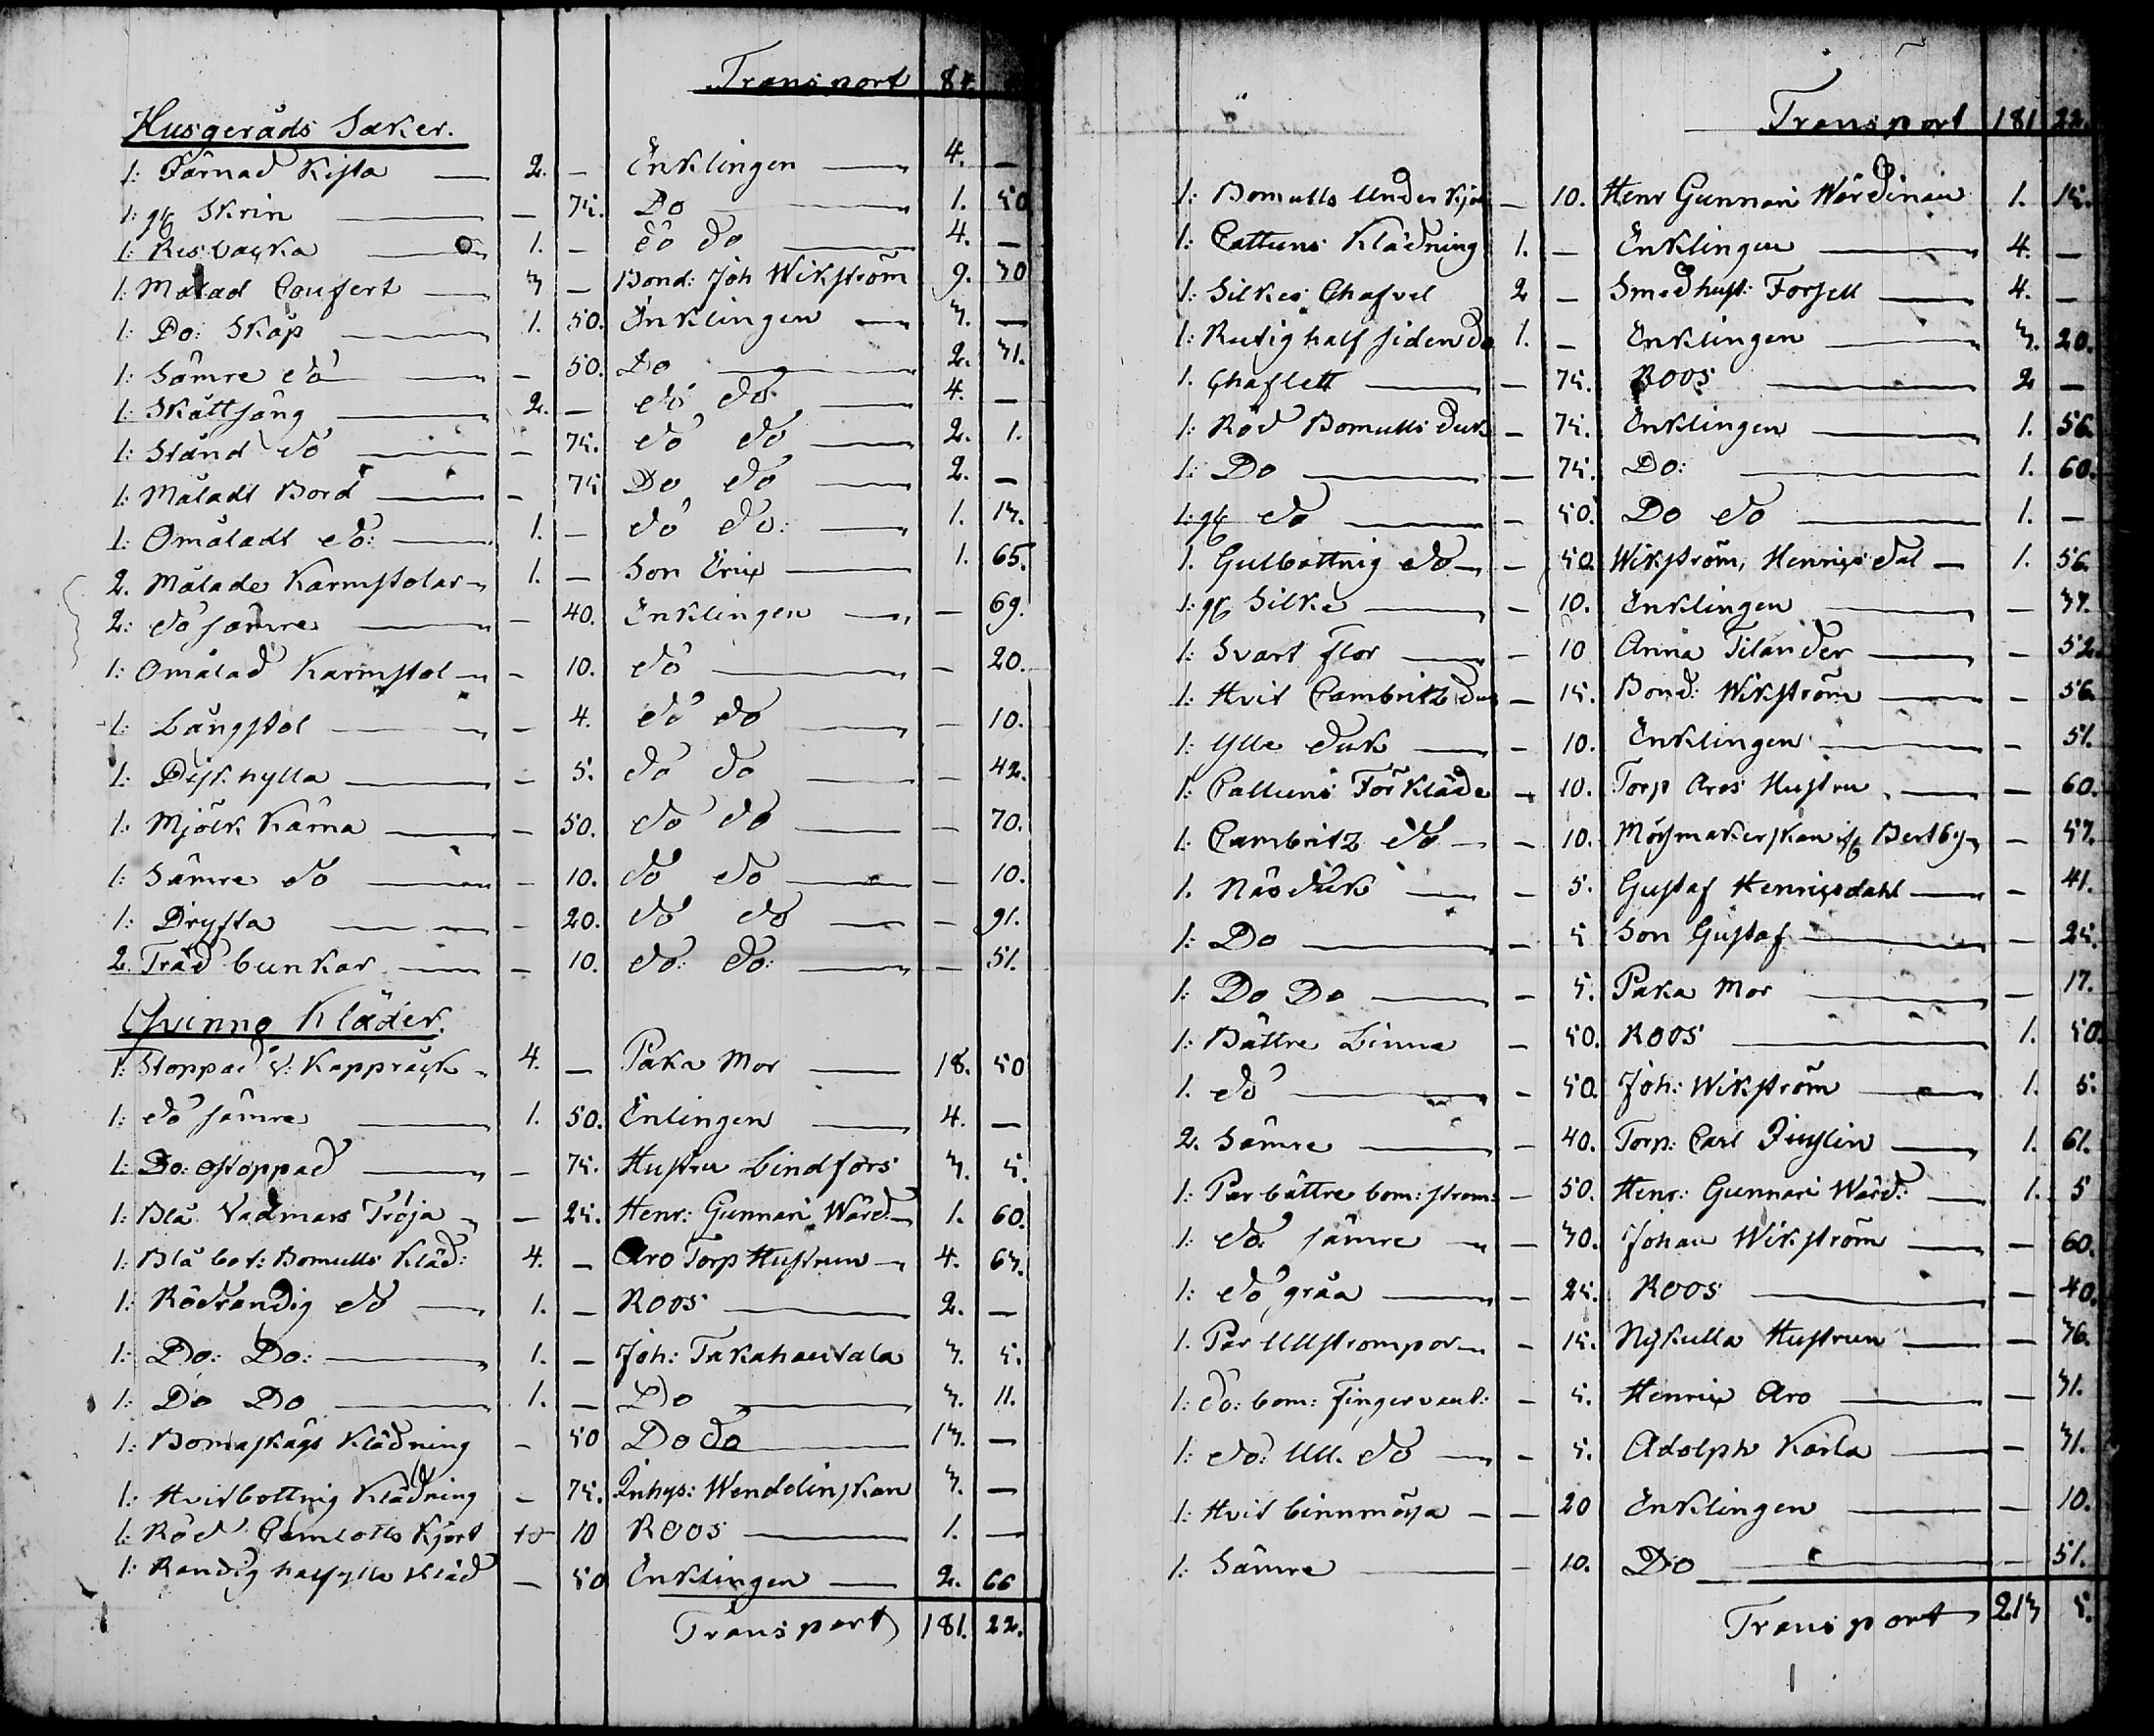 Transport 84.
Husgeråds Saker.
1: Färnad Kista — 2. — Enklingen — 4. —
1: gl Skrin — — 75. Do — 1. 50
1: Resvacka — 1. — do do — 4. —
1: Målad Coufert — 3 — Bond: Joh Wikström 9. 30
1: Do: Skåp — 1. 50. Enklingen — 3. —
1: Sämre do — — 50. Do — 2. 31.
1: Skåttsäng — 2. — do do — 4. —
1: Stånd do — — 75. do do — 2. 1.
1: Måladt Bord — — 75 Do do — 2. —
1: Omåladt do: — 1. — do do: — 1. 13.
2. Målade Karmstolar — 1. — Son Eric — 1. 65.
2: do sämre — — 40. Enklingen — — 69.
1: Omålad Karmstol — — 10. do — — 20.
1: Långstol — — 4. do do — — 10.
1: Disk hylla — — 5. do do — — 42.
1: Mjölk Kärna — — 50. do do — — 70.
1: Sämre do — — 10. do do — — 10.
1: Drysta — — 20. do do — — 91.
2. Träd bunkar — — 10. do: do: — — 51.
Qvinno Kläder.
1: Stoppad v: Kappråck — 4. — Paka Mor — 18. 50
1: do sämre — 1. 50. Enlingen — 4. —
1: Do: ostoppad — — 75. Hustru Lindfors 3. 5.
1: Blå Vadmars Tröja — — 25. Henr: Gunnari Wärd: — 1. 60.
1: Blå bot: Bomulls Kläd: 4. — Aro Torp Hustrun — 4. 63.
1: Rödrandig do — 1. — Roos — 2. —
1: Do: Do: — 1. — Joh: Takahautala 3. 5.
1: Do Do — 1. — Do — 3. 11.
1: Bomaskägs Klädning — 50 Do do — 13. —
1: Hvitbottnig Klädning — 75. Inhys: Wendelinskan 3. —
1: Röd Camlotts Kjort 10 Roos — 1. —
1: Randig halfylle Kläd — 50 Enklingen — 2. 66
Transport 181. 22.
Transport 181 22.
1: Bomulls Under Kjol — 10. Henr Gunnari Wärdinan 1. 15.
1: Cattuns Klädning 1. — Enklingen — 4. —
1: Silkes Chafvel 2 — Smedhust: Forsell — 4. —
1: Rutig half siden do 1. — Enklingen — 3. 20.
1. Chaflett — — 75. Roos — 2 —
1: Röd Bomulls duk — 75. Enklingen — 1. 56.
1: Do — — 75. Do: — 1. 60.
1: gl do — — 50. Do do — 1. —
1. Gulbottnig do — — 50. Wikström, Henricsdal — 1. 56.
1: gl Silke — — 10. Enklingen — — 37.
1: Svart flor — — 10 Anna Tilander — — 52.
1: Hvit Cambritz duk — 15. Bond: Wikström — — 56.
1: Ylle duk — — 10. Enklingen — — 51.
1: Cattuns Förkläde — 10. Torp Aros Hustru — — 60.
1: Cambritz do — — 10. Mössmakerskan Bertby — — 57.
1. Näsduk — — 5. Gustaf Henricsdahl — — 41.
1: Do — — 5 Son Gustaf — — 25.
1: Do Do — — 5. Paka Mor — — 17.
1: Bättre Linne — 50. Roos — 1. 50.
1. do — — 50. Joh: Wikström — 1. 5.
2. Sämre — — 40. Torp: Carl — 1. 61.
1: Par bättre bom: strom: — 50. Henr: Gunnari Wärd: — 1. 5
1: do. sämre — — 30. Johan Wikström — — 60.
1: do gråa — — 25. Roos — — 40.
1. Par Ullstrompor — — 15. Nykulla Hustrun — — 36.
1: do: bom: Fingervant: — 5. Henric Aro — — 31.
1: do: Ull. do — — 5. Adolph Karla — — 31.
1: Hvit linnmössa — — 20 Enklingen — — 10.
1: Sämre — — 10. Do — — 51.
Transport 213 5.